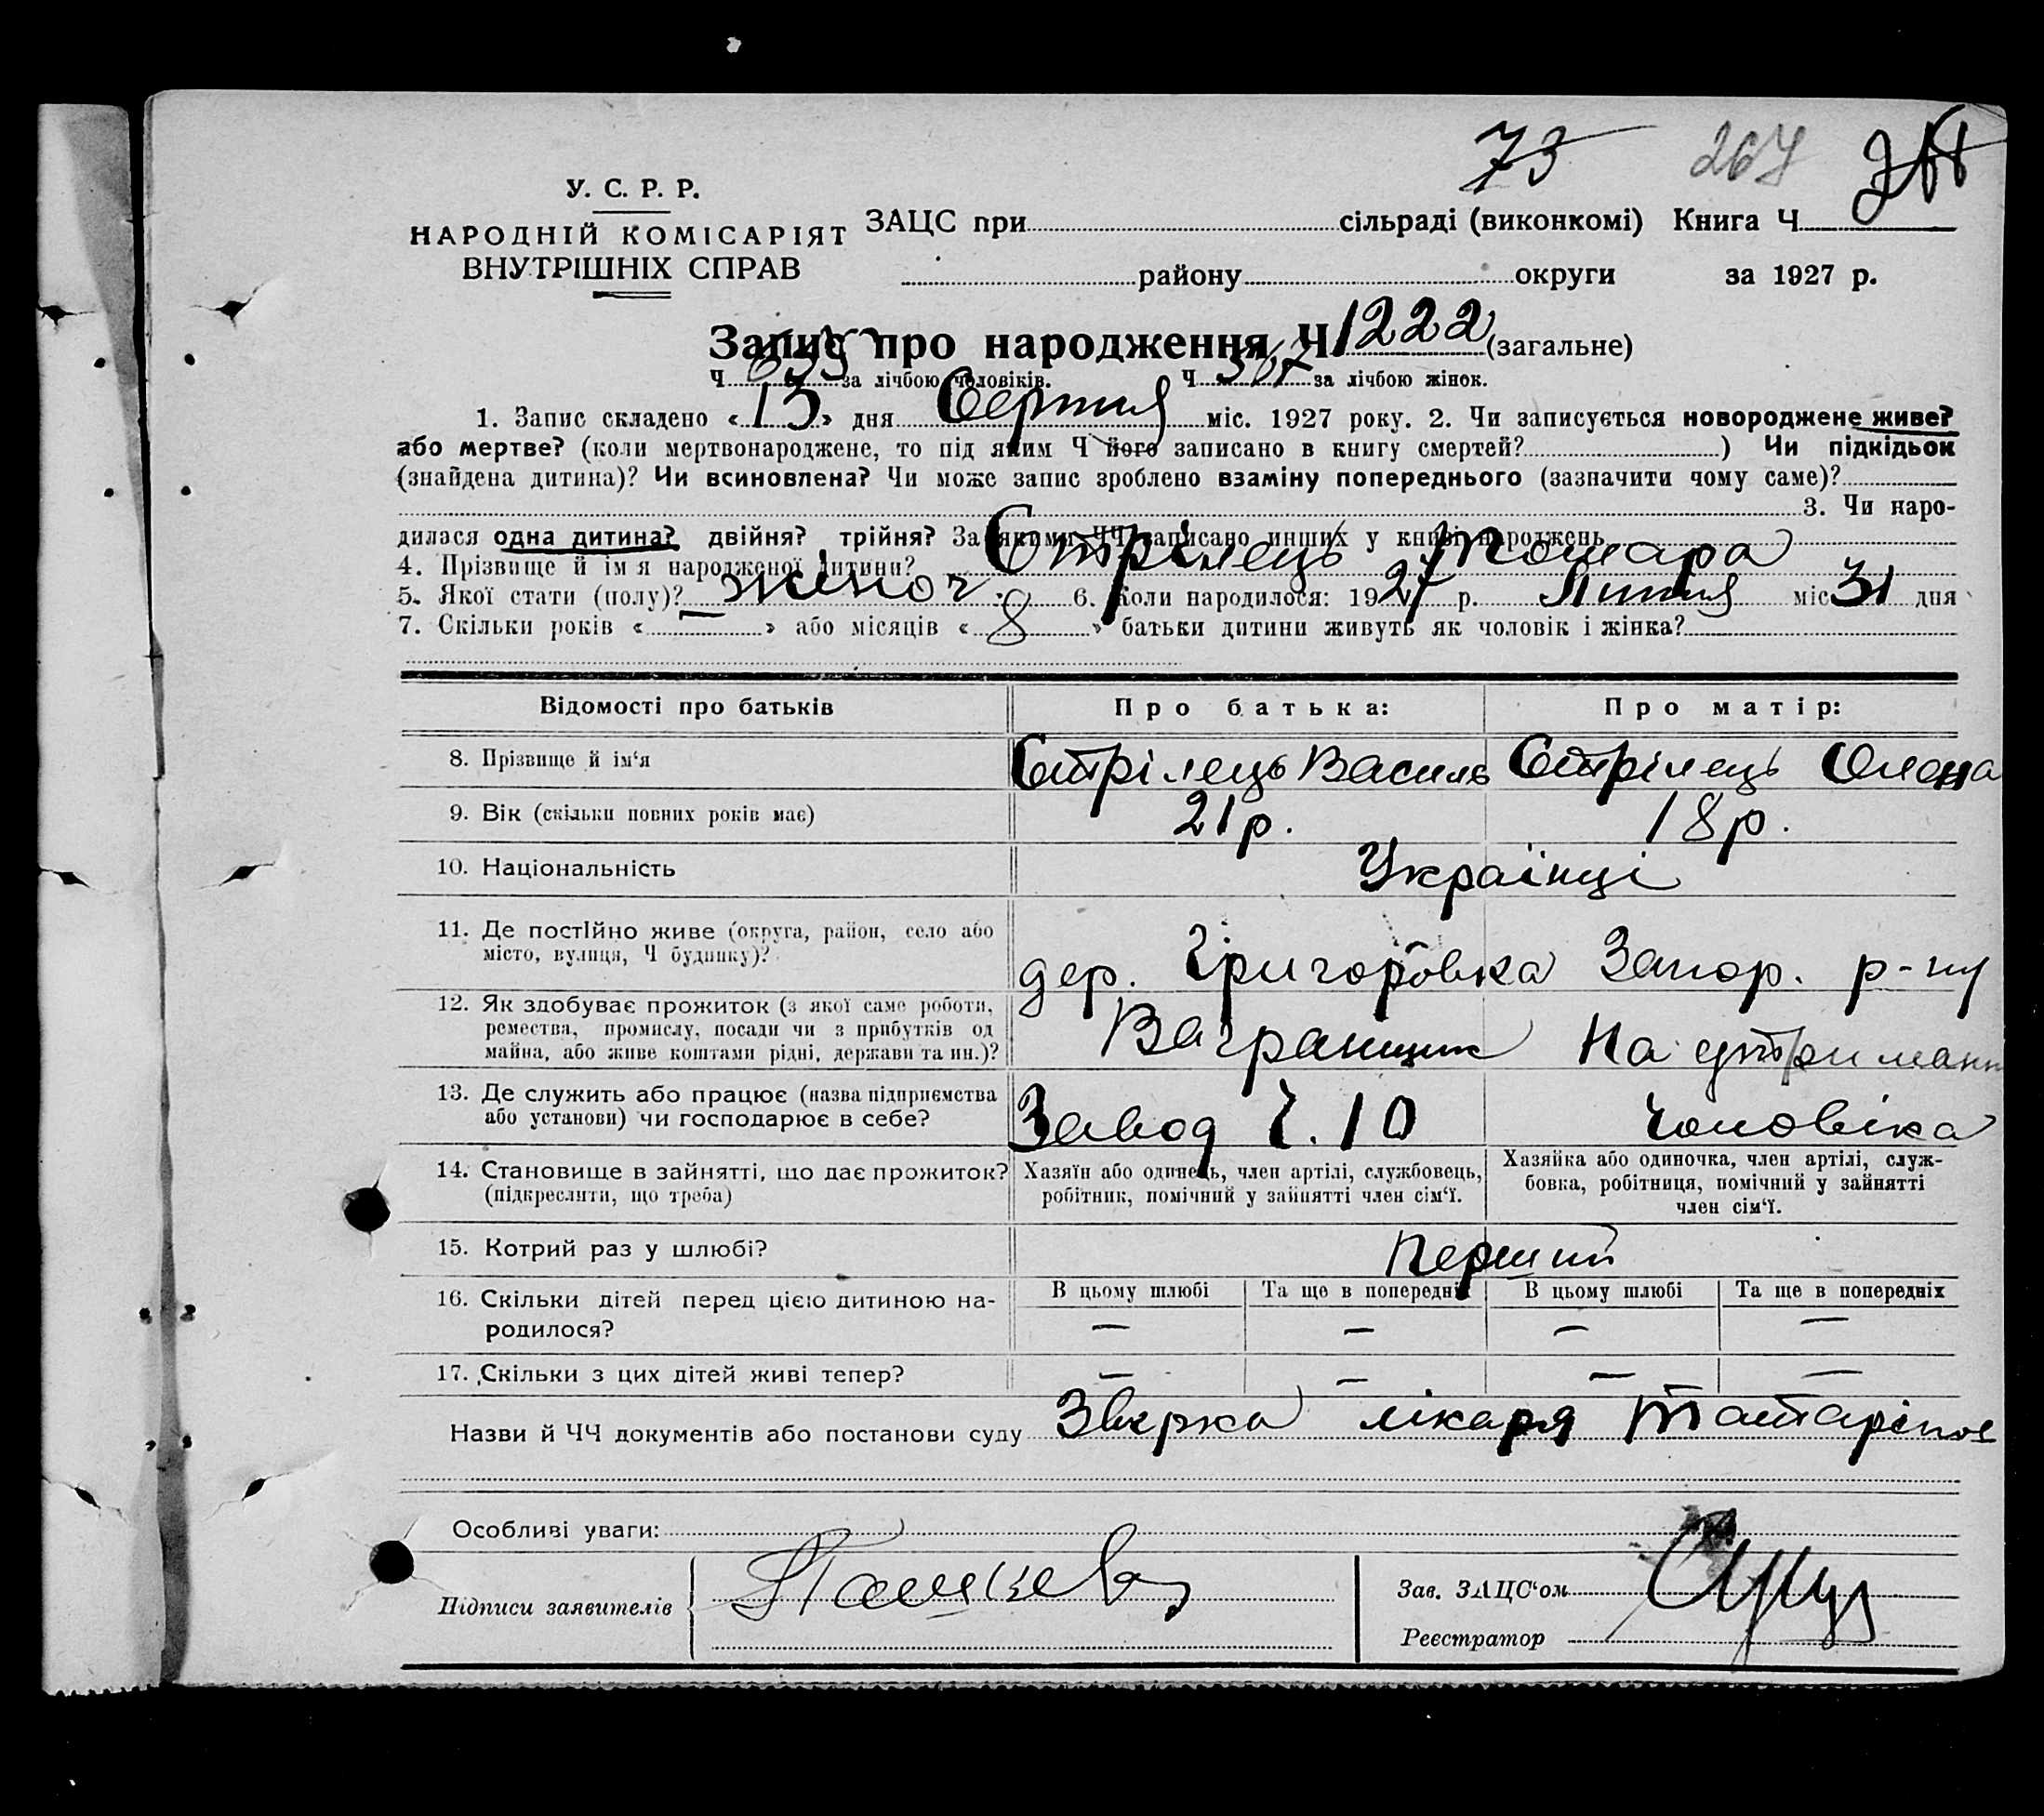 73 267
У. С. Р. Р.
НАРОДНІЙ КОМІСАРІЯТ
ВНУТРІШНІХ СПРАВ
ЗАЦС при сільраді (виконкомі) Книга Ч
району округи за 1927 р.
Запис про народження Ч 1222 (загальне)
Ч за лічбою чоловіків. Ч за лічбою жінок.
1. Запис складено «13» дня Серпня міс. 1927 року. 2. Чи записується новороджене живе?
або мертве? (коли мертвонароджене, то під яким Ч його записано в книгу смертей? ) Чи підкідьок
(знайдена дитина)? Чи всиновлена? Чи може запис зроблено взаміну попереднього (зазначити чому саме)?
3. Чи наро-
дилася одна дитина? двійня? трійня? За якими ЧЧ записано инших у книзі народжень
4. Прізвище й ім я народженої дитини? Стрілець Тамара
5. Якої стати (полу)? жіноч. 6. Коли народилося: 1927 р. Липня міс 31 дня
7. Скільки років « — » або місяців « 8 » батьки дитини живуть як чоловік і жінка?
Відомості про батьків Про батька: Про матір:
8. Прізвище й ім'я Стрілець Василь Стрілець Олена
9. Вік (скільки повних років має) 21 р. 18 р.
10. Національність Українці
11. Де постійно живе (округа, район, село або
місто, вулиця, Ч будинку)? дер. Григоровка Запор. р-ну
12. Як здобуває прожиток (з якої саме роботи,
ремества, промислу, посади чи з прибутків од
майна, або живе коштами рідні, держави та ин.)? Вагранщик На утриманн
13. Де служить або працює (назва підприємства
або установи) чи господарює в себе? Завод Ч. 10 чоловіка
14. Становище в зайнятті, що дає прожиток?
(підкреслити, що треба)
Хазяїн або одинець, член артілі, службовець,
робітник, помічний у зайнятті член сім'ї.
Хазяйка або одиночка, член артілі, служ-
бовка, робітниця, помічний у зайнятті
член сім'ї.
15. Котрий раз у шлюбі? Перший
16. Скільки дітей перед цією дитиною на-
родилося?
В цьому шлюбі Та ще в попередніх В цьому шлюбі Та ще в попередніх
— — — —
17. Скільки з цих дітей живі тепер? — — — —
Назви й ЧЧ документів або постанови суду лікаря
Особливі уваги:
Підписи заявителів
Зав. ЗАЦС'ом
Реєстратор